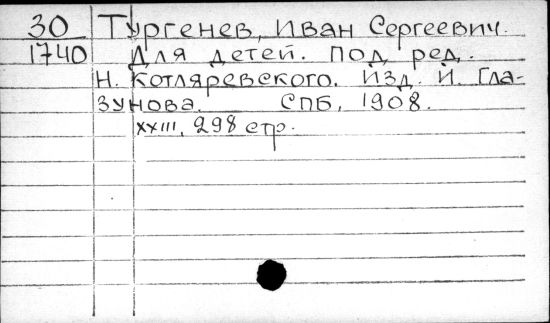 30 Тургенев, Иван Сергеевич.
1740 Для детей. Под ред.
Н. Котляревского. Изд. И. Гла-
зунова. СПБ, 1908.
XXIII, 298 стр.